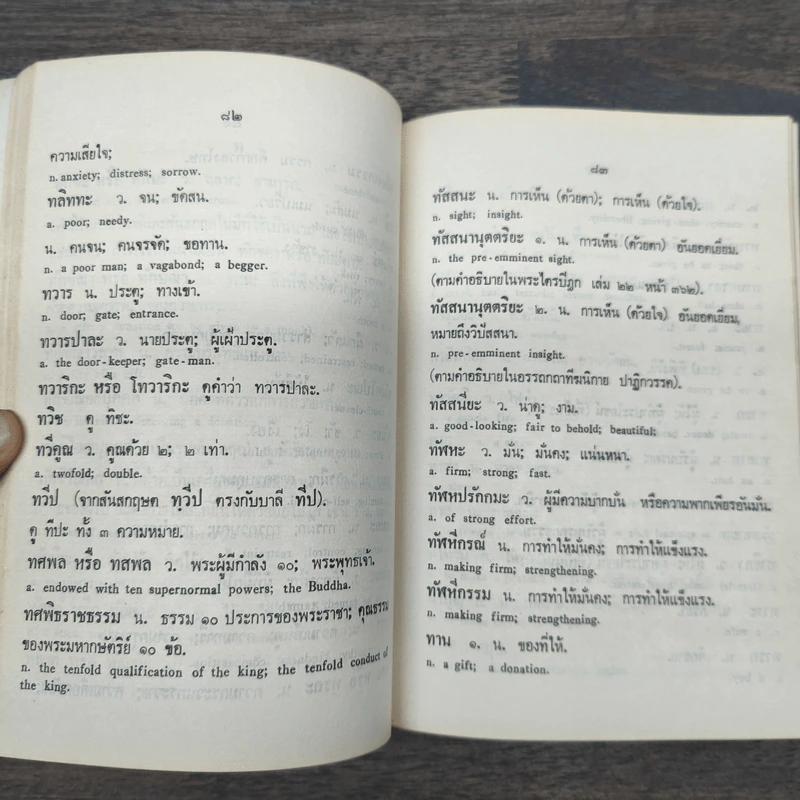 ๘๒
ความเสียใจ;
n. anxiety; distress; sorrow.
ทลิททะ ว. จน; ขัดสน.
a. poor; needy.
น. คนจน; คนจรจัด; ขอทาน.
n. a poor man; a vagabond; a begger.
ทวาร น. ประตู; ทางเข้า.
n. door; gate; entrance.
ทวารปาละ ว. นายประตู; ผู้เฝ้าประตู.
a. the door-keeper; gate-man.
ทวาริกะ หรือ โทวาริกะ ดูคำว่า ทวารปาละ.
ทวิช ดู ทิชะ.
ทวีคูณ ว. คูณด้วย ๒; ๒ เท่า.
a. twofold; double.
ทวีป (จากสันสกฤษต ทฺวีป ตรงกับบาลี ทีป).
ดู ทีปะ ทั้ง ๓ ความหมาย.
ทศพล หรือ ทสพล ว. พระผู้มีกำลัง ๑๐; พระพุทธเจ้า.
a. endowed with ten supernormal powers; the Buddha.
ทศพิธราชธรรม น. ธรรม ๑๐ ประการของพระราชา; คุณธรรม
ของพระมหากษัตริย์ ๑๐ ข้อ.
n. the tenfold qualification of the king; the tenfold conduct of
the king.
๘๓
ทัสสนะ น. การเห็น (ด้วยตา); การเห็น (ด้วยใจ).
n. sight; insight.
ทัสสนานุตตริยะ ๑. น. การเห็น (ด้วยตา) อันยอดเยี่ยม.
n. the pre-emminent sight.
(ตามคำอธิบายในพระไตรปิฎก เล่ม ๒๒ หน้า ๓๖๒).
ทัสสนานุตตริยะ ๒. น. การเห็น (ด้วยใจ) อันยอดเยี่ยม,
หมายถึงวิปัสสนา.
n. pre-emminent insight.
(ตามคำอธิบายในอรรถกถาทีฆนิกาย ปาฏิกวรรค).
ทัสสนียะ ว. น่าดู; งาม.
a. good-looking; fair to behold; beautiful;
ทัฬหะ ว. มั่น; มั่นคง; แน่นหนา.
a. firm; strong; fast.
ทัฬหปรักกมะ ว. ผู้มีความบากบั่น หรือความพากเพียรอันมั่น.
a. of strong effort.
ทัฬหีกรณ์ น. การทำให้มั่นคง; การทำให้แข็งแรง.
n. making firm; strengthening.
ทัฬหีกรรม น. การทำให้มั่นคง; การทำให้แข็งแรง.
n. making firm; strengthening.
ทาน ๑. น. ของที่ให้.
n. a gift; a donation.